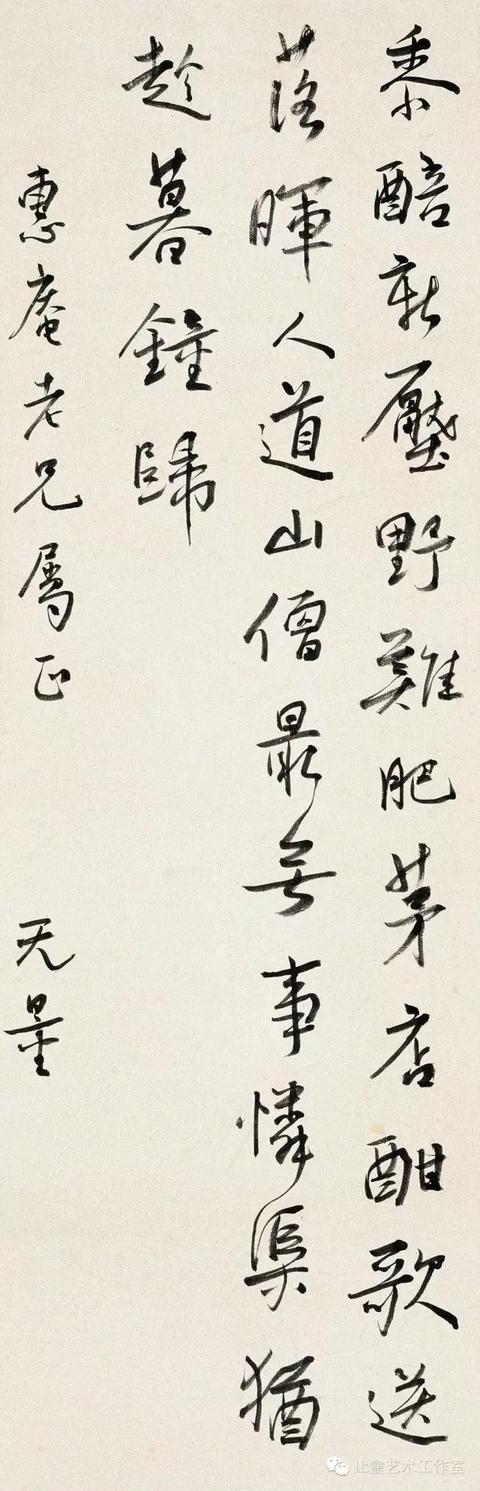 黍醅新壓野雞肥茅店酣歌送
落暉人道山僧最無事憐渠猶
趁暮鐘歸
惠庵老兄屬正
无量
艺术工作室